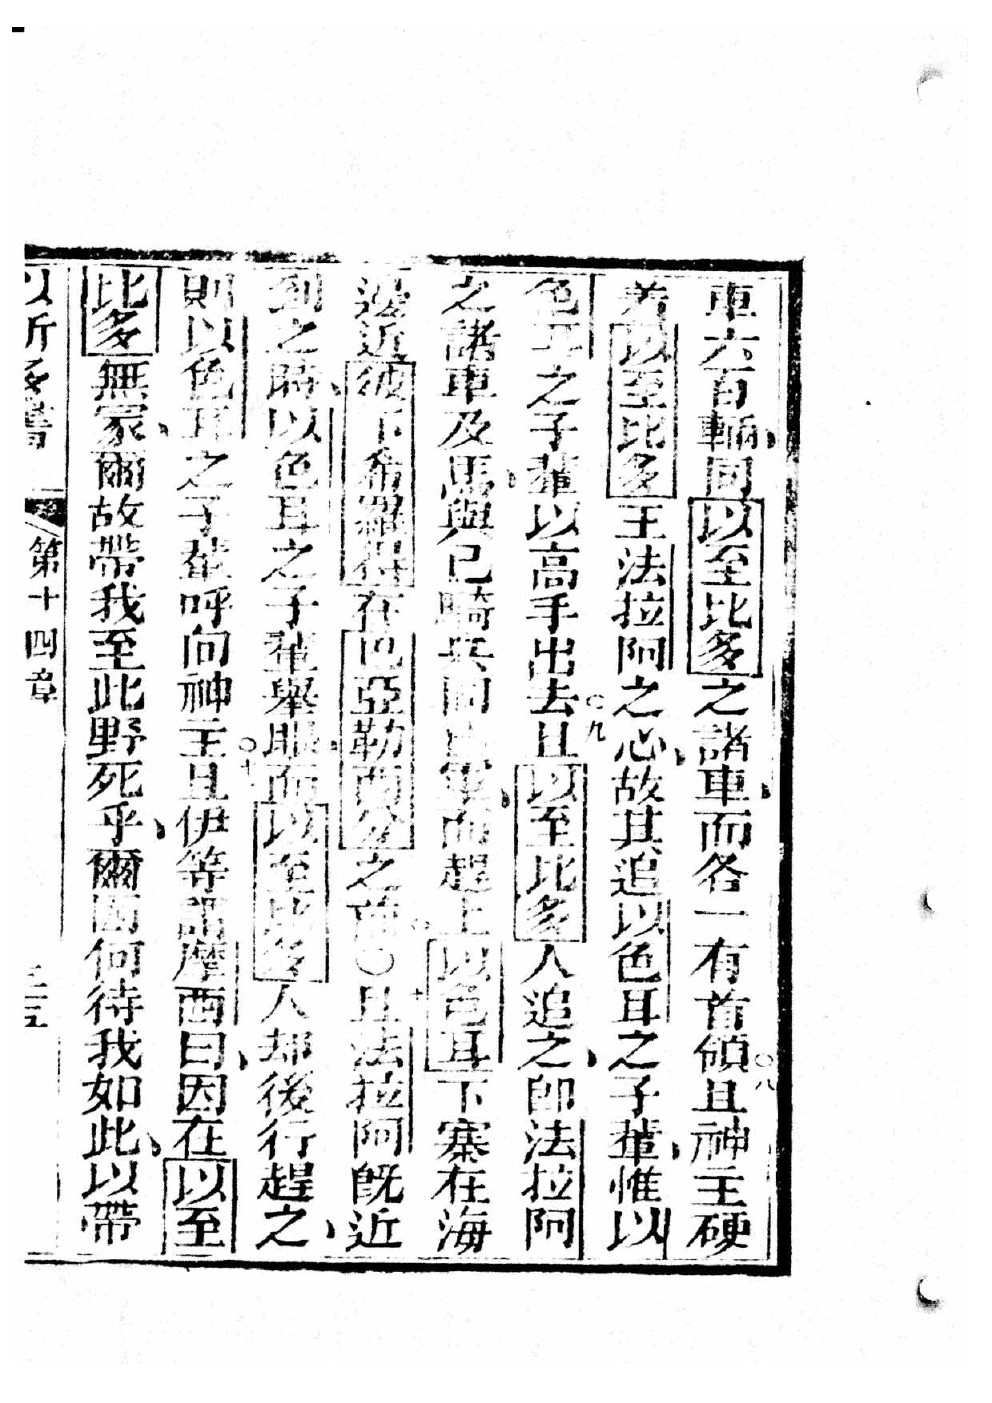 車六百輛同以至比多之諸車而各一有首領○八且神主硬
着以至比多王法拉阿之心故其追以色耳之子輩惟以
色耳之子輩以高手出去○九且以至比多人追之卽法拉阿
之諸車及馬與已騎兵同軍而趕上以色耳下寨在海
邊近彼下希羅得在巴亞勒西分之前○十且法拉阿旣近
到之時以色耳之子輩舉眼而以至比多人却後行趕之
則以色耳之子輩呼向神主○十且伊等謂摩西曰因在以至
比多無冢爾故帶我至此野死乎爾因何待我如此以帶
以所多書 第十四章 三五